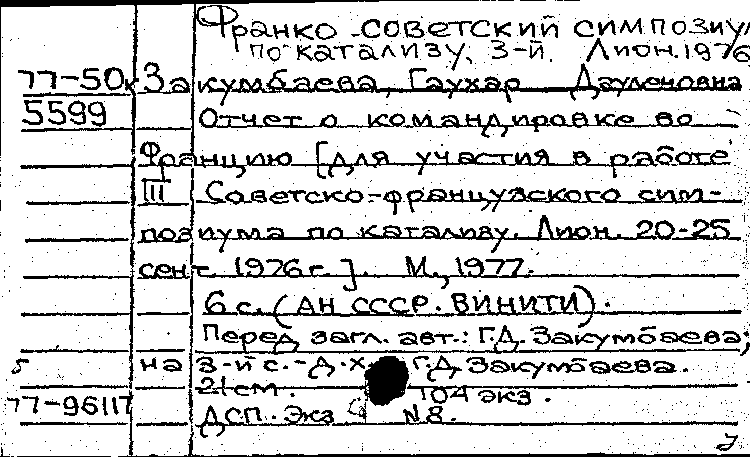 Франко-советский симпозиум
по катализу. 3-й. Лион. 1976
77-50к Закумбаева, Гаухар Даулетовна
5599 Отчет о командировке во
Францию [для участия в работе
III Советско-французского сим-
позиума по катализу. Лион. 20-25
сент. 1976 г.]. М., 1977.
6 с. (АН СССР. ВИНИТИ).
Перед загл. авт.: Г.Д. Закумбаева;
б на 3-й с.-д.х. Г.Д. Закумбаева.
21 см. 104 экз.
77-96117 ДСП. Экз. N8.